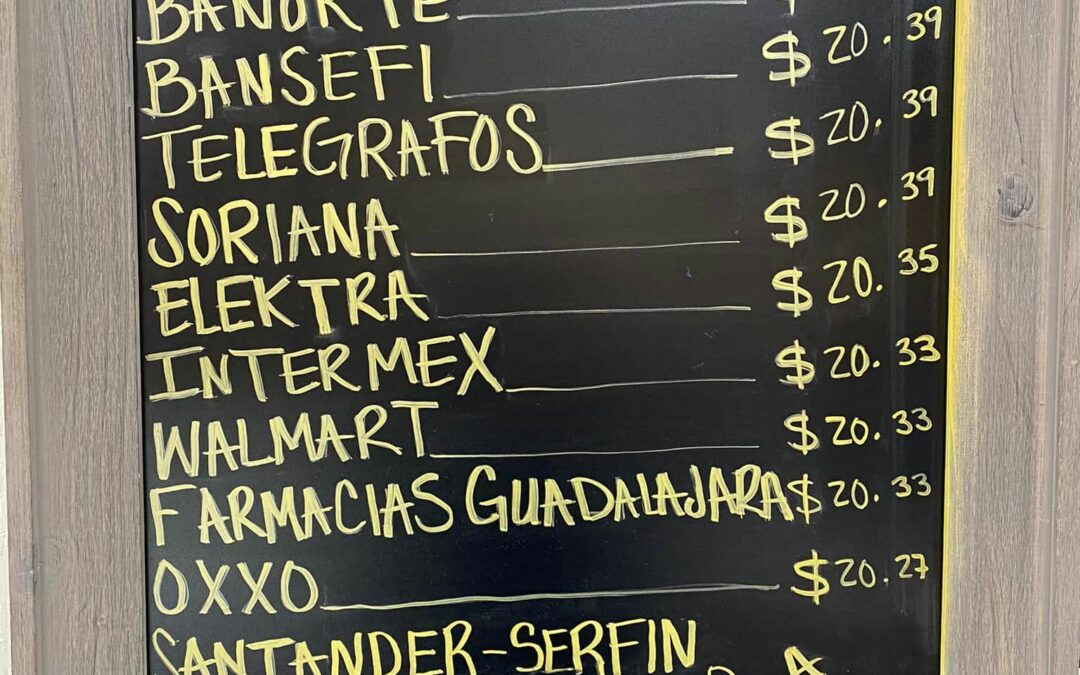 BANORTE
BANSEFI $ 20.39
TELEGRAFOS $ 20.39
SORIANA $ 20.39
ELEKTRA $ 20.35
INTERMEX $ 20.33
WALMART $ 20.33
FARMACIAS GUADALAJARA $ 20.33
OXXO $ 20.27
SANTANDER-SERFIN